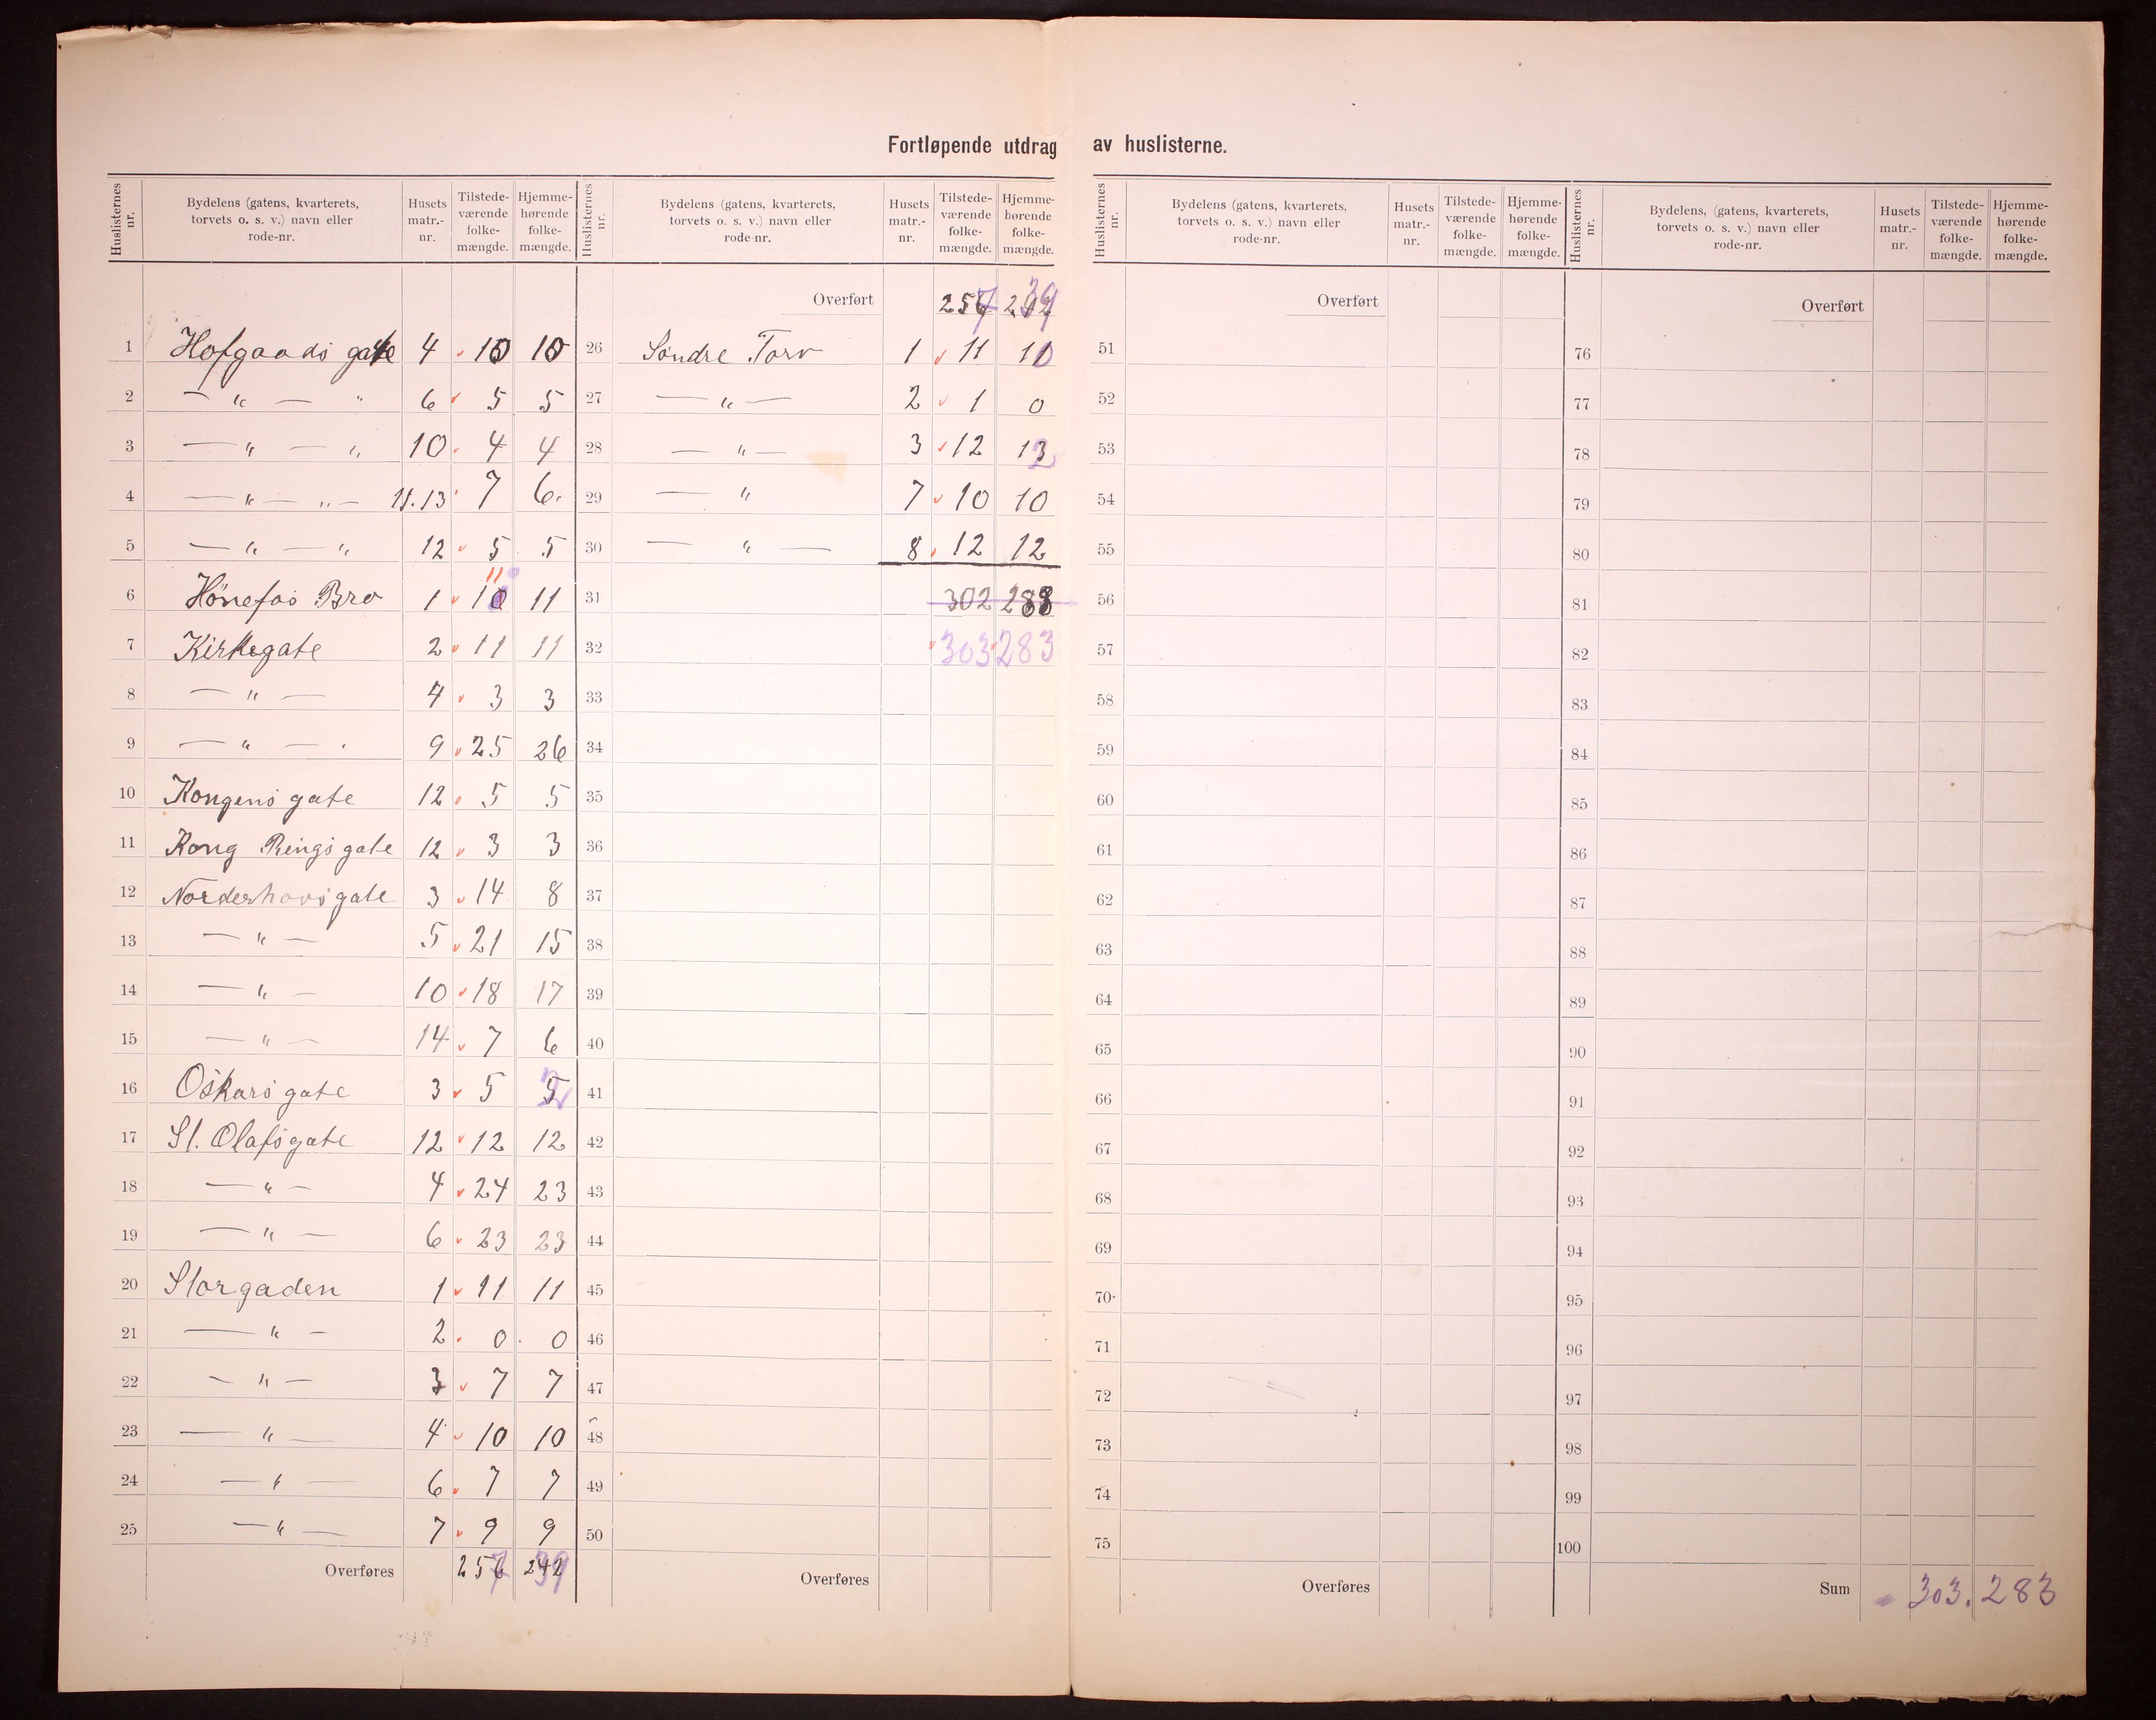 Fortløpende utdrag av huslisterne.
Huslisternes nr. | Bydelens (gatens, kvarterets, torvets o. s. v.) navn eller rode-nr. | Husets matr.-nr. | Tilstede-værende folke-mængde. | Hjemme-hørende folke-mængde.
1 Hofgaads gate 4 10 10
2 — " — " 6 5 5
3 — " — " 10 4 4
4 — " — " — 11.13 7 6
5 — " — " 12 5 5
6 Hönefos Bro 1 11 11
7 Kirkegate 2 11 11
8 — " — 4 3 3
9 — " — 9 25 26
10 Kongens gate 12 5 5
11 Kong Rings gate 12 3 3
12 Norderhovs gate 3 14 8
13 — " — 5 21 15
14 — " — 10 18 17
15 — " — 14 7 6
16 Oskars gate 3 5 2
17 St. Olafs gate 12 12 12
18 — " — 4 24 23
19 — " — 6 23 23
20 Storgaden 1 11 11
21 — " — 2 0 0
22 — " — 3 7 7
23 — " — 4 10 10
24 — " — 6 7 7
25 — " — 7 9 9
Overføres 257 239
Huslisternes nr. | Bydelens (gatens, kvarterets, torvets o. s. v.) navn eller rode-nr. | Husets matr.-nr. | Tilstede-værende folke-mængde. | Hjemme-hørende folke-mængde.
Overført 257 239
26 Söndre Torv 1 11 10
27 — " — 2 1 0
28 — " — 3 12 12
29 — " 7 10 10
30 — " — 8 12 12
31 302 288
32 303 283
33
34
35
36
37
38
39
40
41
42
43
44
45
46
47
48
49
50
Overføres
Huslisternes nr. | Bydelens (gatens, kvarterets, torvets o. s. v.) navn eller rode-nr. | Husets matr.-nr. | Tilstede-værende folke-mængde. | Hjemme-hørende folke-mængde.
Overført
51
52
53
54
55
56
57
58
59
60
61
62
63
64
65
66
67
68
69
70
71
72
73
74
75
Overføres
Huslisternes nr. | Bydelens, (gatens, kvarterets, torvets o. s. v.) navn eller rode-nr. | Husets matr.-nr. | Tilstede-værende folke-mængde. | Hjemme-hørende folke-mængde.
Overført
76
77
78
79
80
81
82
83
84
85
86
87
88
89
90
91
92
93
94
95
96
97
98
99
100
Sum 303. 283